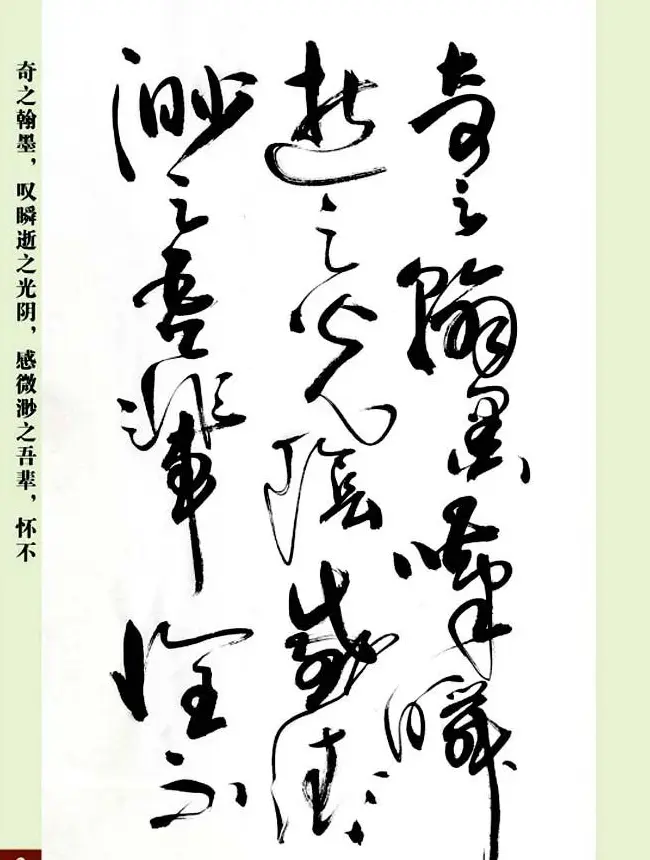 奇之翰墨嘆瞬
逝之光陰感微
渺之吾輩懷不
奇之翰墨，叹瞬逝之光阴，感微渺之吾辈，怀不